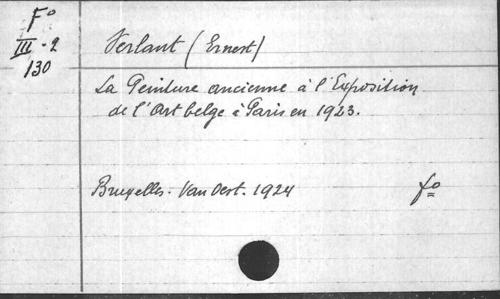 Fo
III-2
130
Verlant (Ernest)
La Peinture ancienne à l'Exposition
de l'Art belge à Paris en 1923.
Bruxelles. Van Oest. 1924
fo